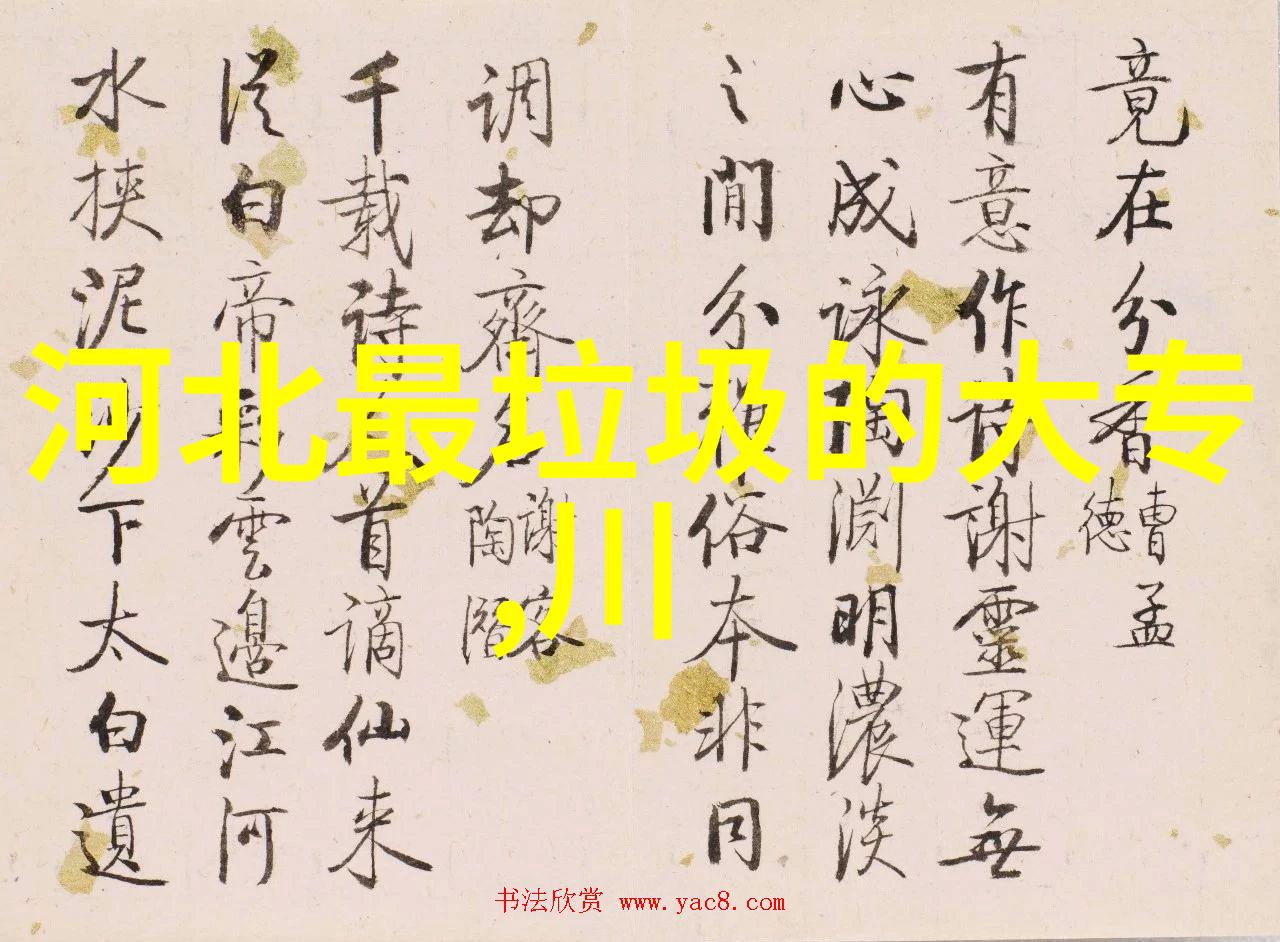 竟在分香曹孟德
有意作詩謝靈運無
心成詠陶淵明濃淡
之間分雅俗本非同
调却齊名謝客陶潛
千载诗人首谪仙来
從白帝彩雲邊江河
水挟泥沙下太白遺
河北最垃圾的大专
,川
书法欣赏 www.yac8.com